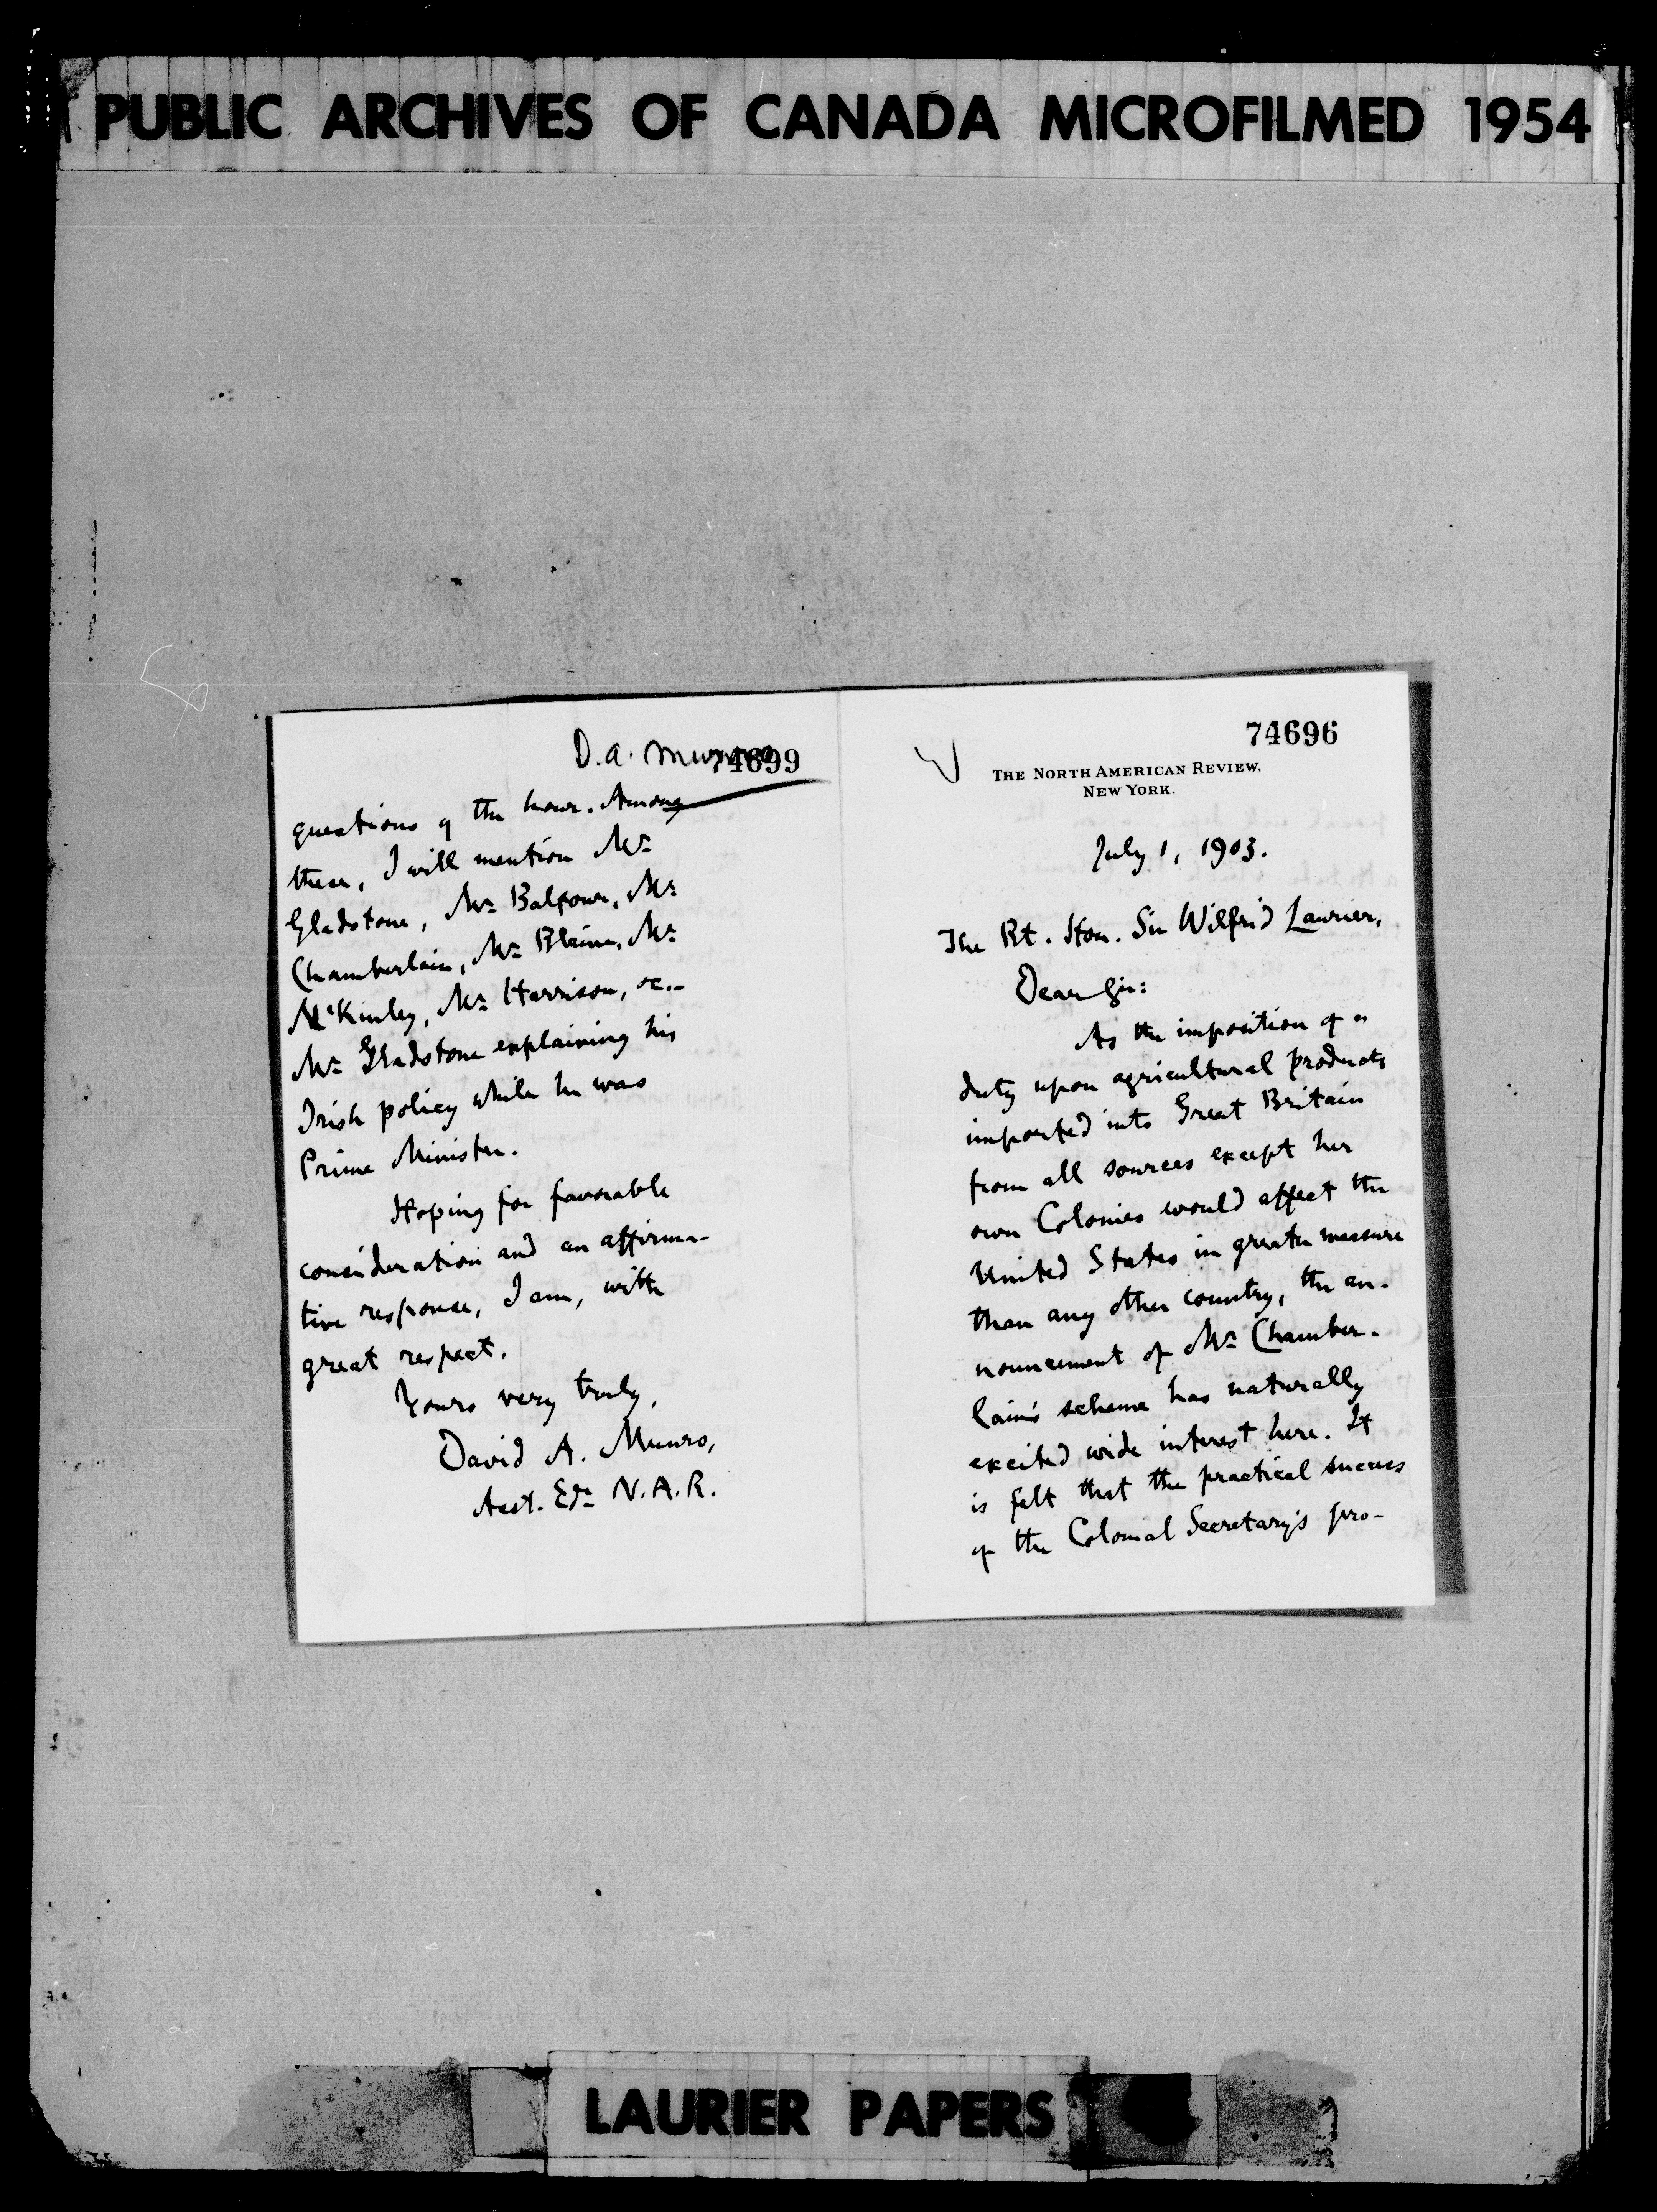 PUBLIC ARCHIVES OF CANADA MICROFILMED 1954
D. A. Munro
74699
questions of the hour. Among
these, I will mention Mr
Gladstone, Mr Balfour, Mr
Chamberlain, Mr Blaine, Mr
McKinley, Mr Harrison, &c.–
Mr Gladstone explaining his
Irish policy while he was
Prime Minister.
Hoping for favorable
consideration and an affirma-
tive response, I am, with
great respect,
Yours very truly,
David A. Munro,
Asst. Edr N.A.R.
74696
THE NORTH AMERICAN REVIEW,
NEW YORK.
July 1, 1903.
The Rt. Hon. Sir Wilfrid Laurier,
Dear Sir:
As the imposition of a
duty upon agricultural products
imported into Great Britain
from all sources except her
own Colonies would affect the
United States in greater measure
than any other country, the an-
nouncement of Mr Chamber-
lain's scheme has naturally
excited wide interest here. It
is felt that the practical success
of the Colonial Secretary's pro-
LAURIER PAPERS